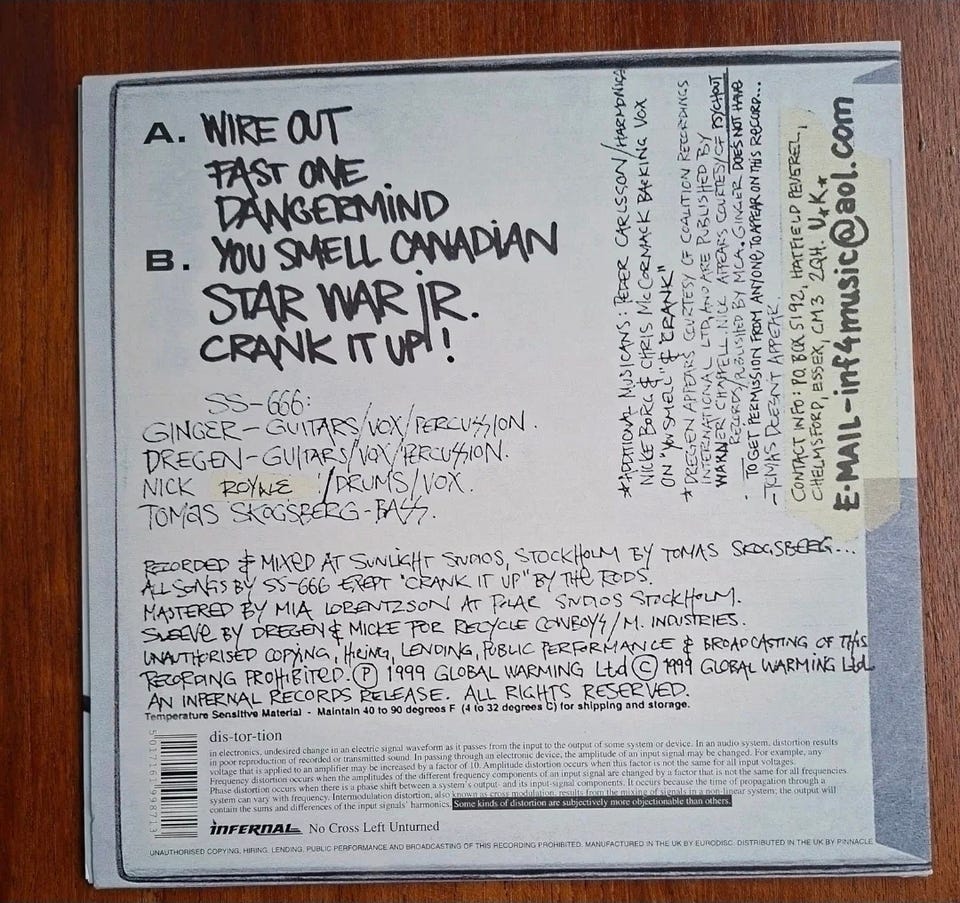 A. WIRE OUT
FAST ONE
DANGERMIND
B. YOU SMELL CANADIAN
STAR WAR JR.
CRANK IT UP!!
SS-666:
GINGER - GUITARS/VOX/PERCUSSION.
DREGEN - GUITARS/VOX/PERCUSSION.
NICK ROYNE /DRUMS/VOX.
TOMAS SKOGSBERG - BASS.
*ADDITIONAL MUSICIANS: PEDER CARLSSON/HARMONICA
NICKE BORG & CHRIS McCORMACK BACKING VOX
ON "YOU SMELL" & "CRANK"
*DREGEN APPEARS COURTESY OF COALITION RECORDINGS
INTERNATIONAL LTD, AND ARE PUBLISHED BY
WARNER CHAPPELL. NICK APPEARS COURTESY OF PSYCHOUT
RECORDS/PUBLISHED BY MCA. GINGER DOES NOT HAVE
TO GET PERMISSION FROM ANYONE TO APPEAR ON THIS RECORD...
- TOMAS DOESNT APPEAR.
CONTACT INFO: P.O. BOX 5192, HATFIELD PEVEREL,
CHELMSFORD, ESSEX, CM3 2QH. U*K*
E-MAIL-inf4music@aol.com
RECORDED & MIXED AT SUNLIGHT STUDIOS, STOCKHOLM BY TOMAS SKOGSBERG...
ALL SONGS BY SS-666 EXEPT "CRANK IT UP" BY THE RODS.
MASTERED BY MIA LORENTZSON AT POLAR STUDIOS STOCKHOLM.
SLEEVE BY DREGEN & MICKE FOR RECYCLE COWBOYS/M. INDUSTRIES.
UNAUTHORISED COPYING, HIRING, LENDING, PUBLIC PERFORMANCE & BROADCASTING OF THIS
RECORDING PROHIBITED. Ⓟ 1999 GLOBAL WARMING Ltd © 1999 GLOBAL WARMING Ltd.
AN INFERNAL RECORDS RELEASE. ALL RIGHTS RESERVED.
Temperature Sensitive Material - Maintain 40 to 90 degrees F (4 to 32 degrees C) for shipping and storage.
dis-tor-tion
in electronics, undesired change in an electric signal waveform as it passes from the input to the output of some system or device. In an audio system, distortion results
in poor reproduction of recorded or transmitted sound. In passing through an electronic device, the amplitude of an input signal may be changed. For example, any
voltage that is applied to an amplifier may be increased by a factor of 10. Amplitude distortion occurs when this factor is not the same for all input voltages.
Frequency distortion occurs when the amplitudes of the different frequency components of an input signal are changed by a factor that is not the same for all frequencies.
Phase distortion occurs when there is a phase shift between a system's output- and its input-signal components. It occurs because the time of propagation through a
system can vary with frequency. Intermodulation distortion, also known as cross modulation, results from the mixing of signals in a non-linear system; the output will
contain the sums and differences of the input signals' harmonics. Some kinds of distortion are subjectively more objectionable than others.
INFERNAL No Cross Left Unturned
UNAUTHORISED COPYING, HIRING, LENDING, PUBLIC PERFORMANCE AND BROADCASTING OF THIS RECORDING PROHIBITED. MANUFACTURED IN THE UK BY EURODISC. DISTRIBUTED IN THE UK BY PINNACLE